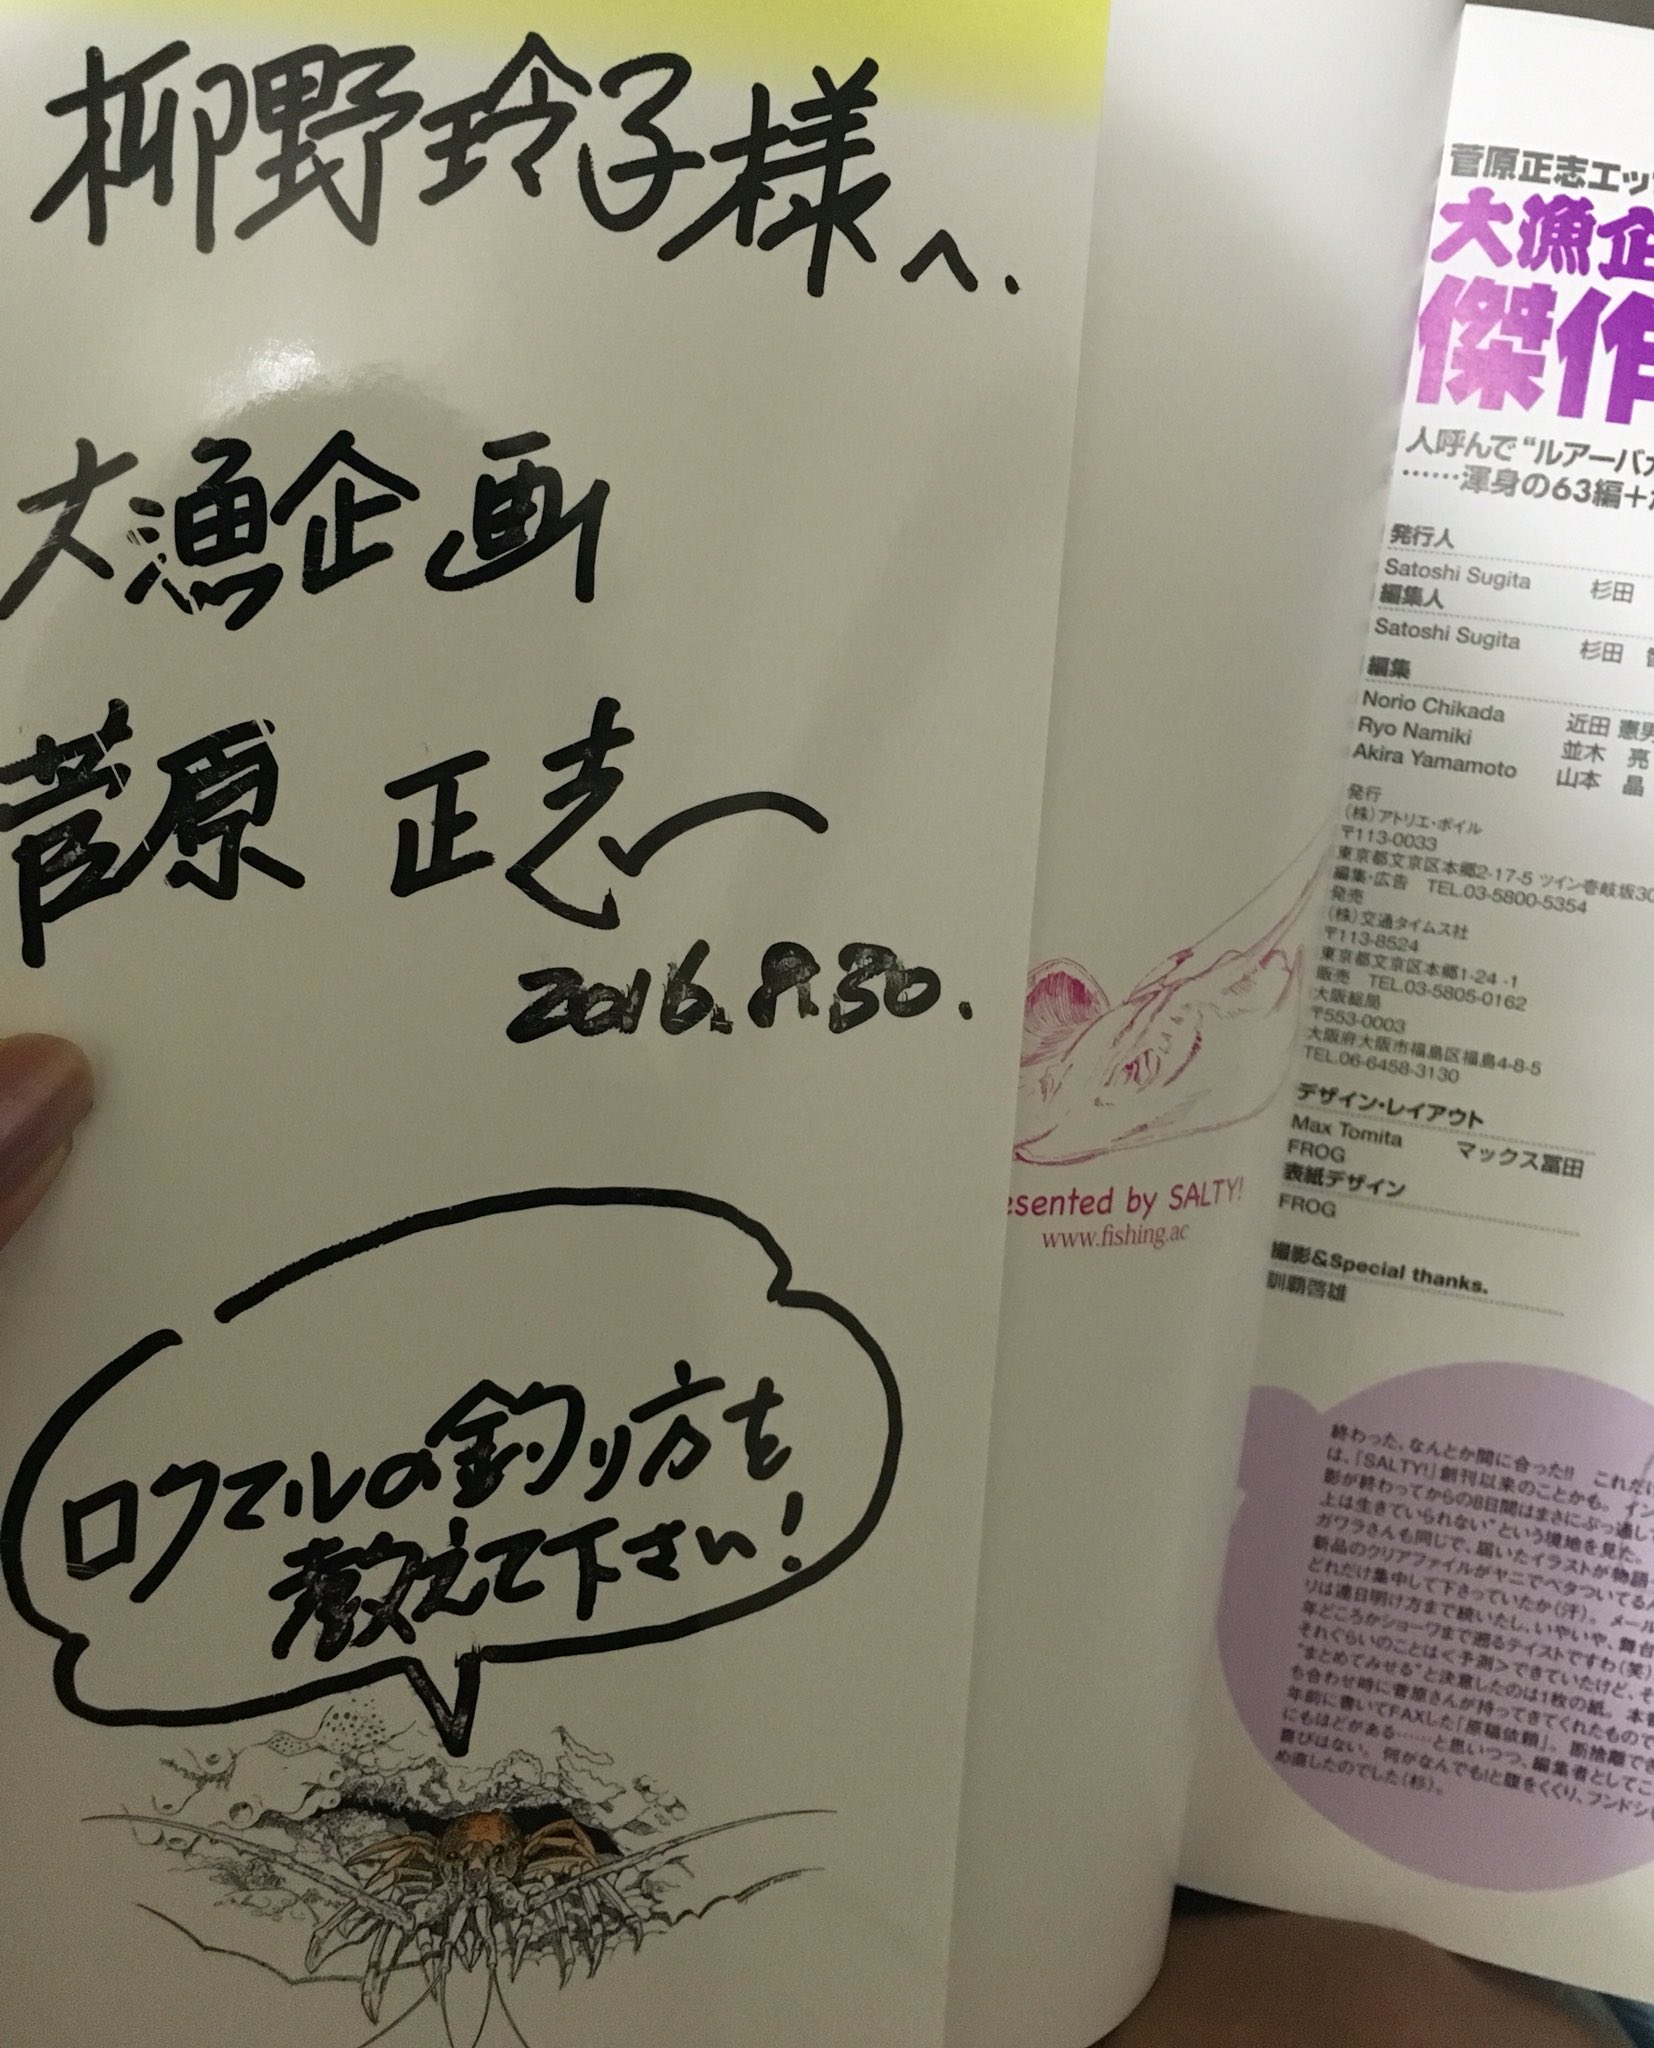 柳野玲子様へ.
大漁企画
菅原 正志
2016.8.30.
ロクマルの釣り方を
教えて下さい!
esented by SALTY!
www.fishing.ac
菅原正志エッ
大漁企
傑作
人呼んで“ルアーバカ
……渾身の63編+
発行人
Satoshi Sugita 杉田
編集人
Satoshi Sugita 杉田
編集
Norio Chikada 近田 憲男
Ryo Namiki 並木 亮
Akira Yamamoto 山本 晶
発行
(株)アトリエ・ボイル
〒113-0033
東京都文京区本郷2-17-5 ツイン壱岐坂30
編集・広告 TEL.03-5800-5354
発売
(株)交通タイムス社
〒113-8524
東京都文京区本郷1-24-1
販売 TEL.03-5805-0162
大阪総局
〒553-0003
大阪府大阪市福島区福島4-8-5
TEL.06-6458-3130
デザイン・レイアウト
Max Tomita マックス冨田
FROG
表紙デザイン
FROG
撮影&Special thanks.
訓覇啓雄
終わった、なんとか間に合った!! これだけ
は、「SALTY!」創刊以来のことかも。イン
影が終わってからの8日間はまさにぶっ通し
上は生きていられない”という境地を見た。
ガワラさんも同じで、届いたイラストが物語
新品のクリアファイルがヤニでベタついてる
どれだけ集中して下さっていたか(汗)。メール
リは連日明け方まで続いたし、いやいや、舞台
年どころかショーワまで遡るテイストですわ(笑)
それぐらいのことは<予測>できていたけど、そ
“まとめてみせる”と決意したのは1枚の紙。本
も合わせ時に菅原さんが持ってきてくれたもので
年前に書いてFAXした「原稿依頼」。断捨離でき
にもほどがある……と思いつつ、編集者としてこ
喜びはない。何がなんでも!と腹をくくり、フンドシ
め直したのでした(杉)。